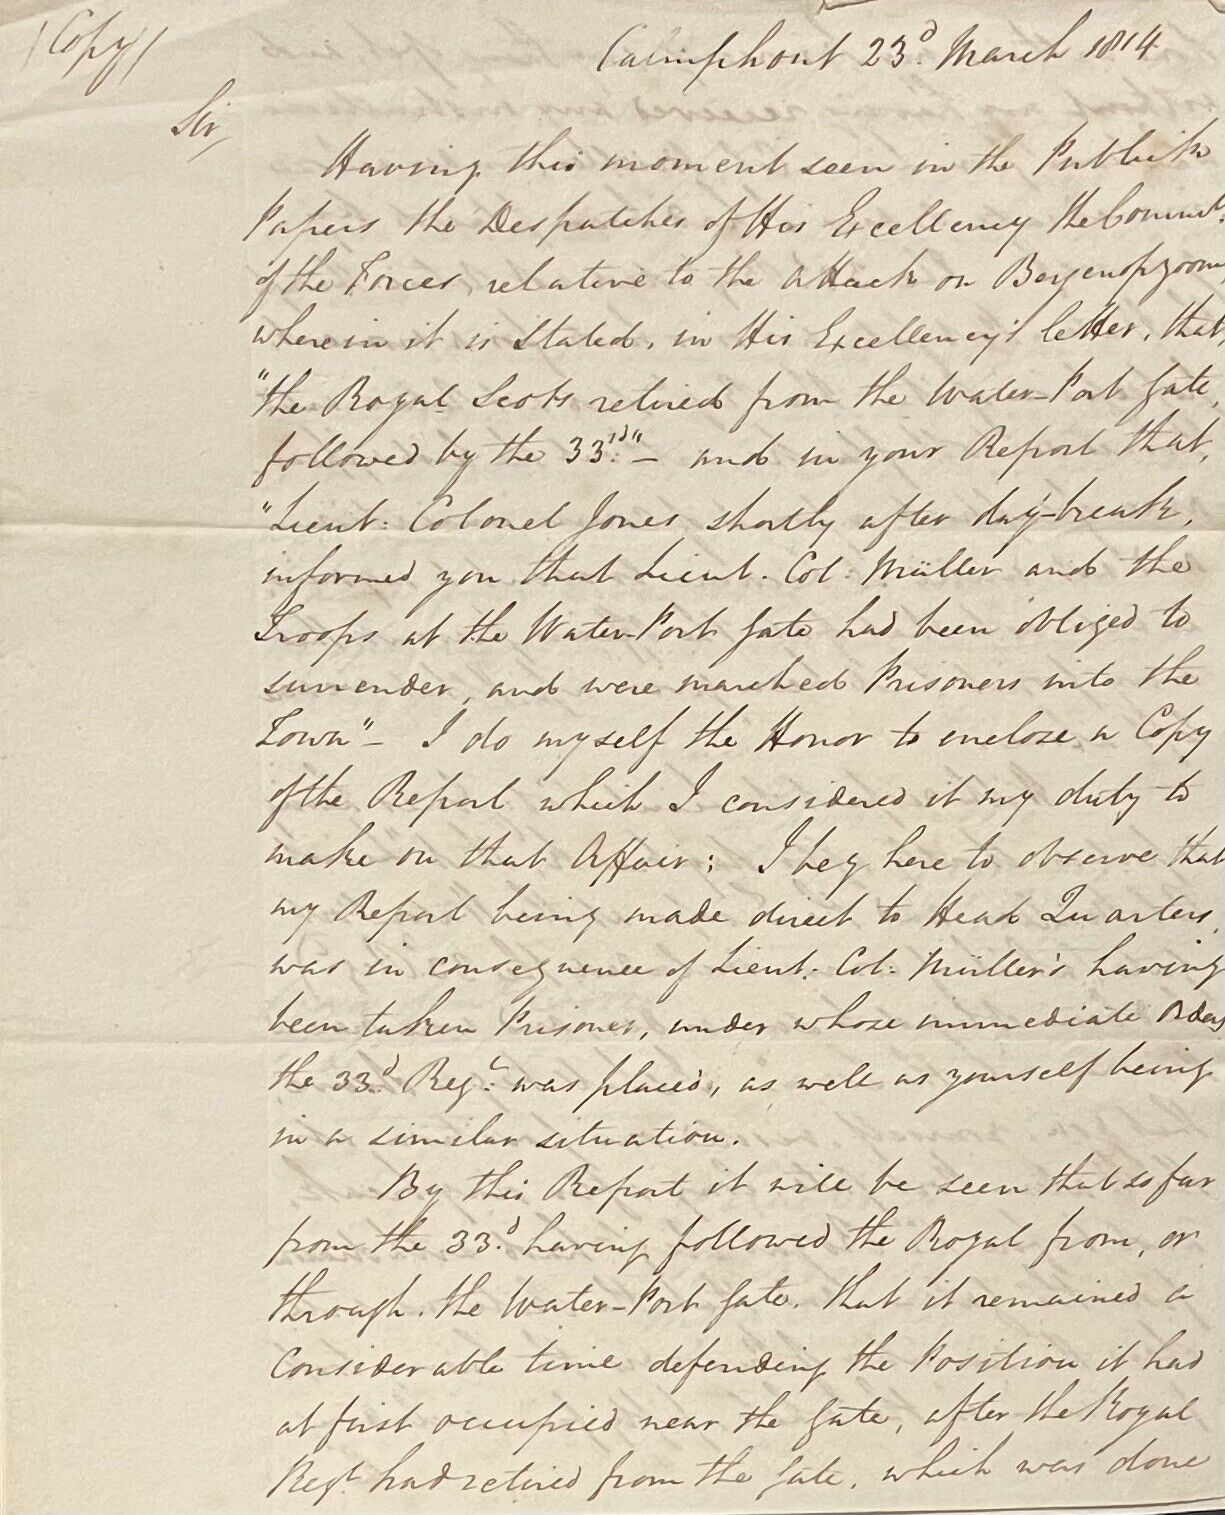 /Copy/
Calmphout 23.d March 1814
Sir,
Having this moment seen in the Publick
Papers the Despatches of His Excellency the Commr.
of the Forces, relative to the Attack on Bergenopzoom,
wherein it is Stated, in His Excellency's letter, that,
"the Royal Scots retired from the Water-Port Gate,
followed by the 33.rd" - and in your Report that,
"Lieut: Colonel Jones, shortly after day-break,
informed you that Lieut. Col: Müller and the
Troops at the Water-Port Gate had been obliged to
surrender, and were marched Prisoners into the
Town" - I do myself the Honor to enclose a Copy
of the Report which I considered it my duty to
make on that Affair; I beg here to observe that
my Report being made direct to Head Quarters,
was in consequence of Lieut: Col: Müller's having
been taken Prisoner, under whose immediate Orders
the 33.d Reg.t was placed, as well as yourself being
in a similar situation.
By this Report it will be seen that so far
from the 33.d having followed the Royal from, or
through, the Water-Port Gate, that it remained a
Considerable time defending the Position it had
at first occupied near the Gate, after the Royal
Reg.t had retired from the Gate, which was done